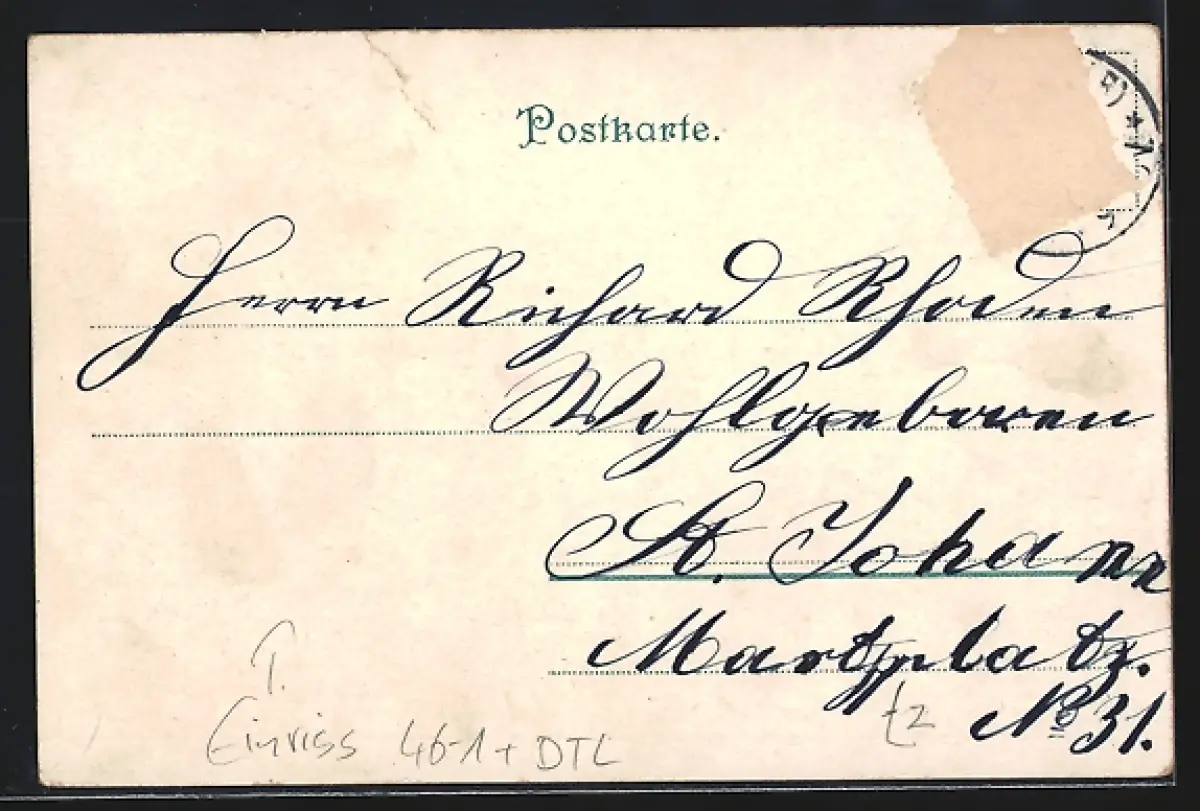 Postkarte.
Herrn Richard Rhoden
Wohlgeboren
St. Johann
Martplatz.
No 31.
T.
Einriss 46-1 + DTL
tz